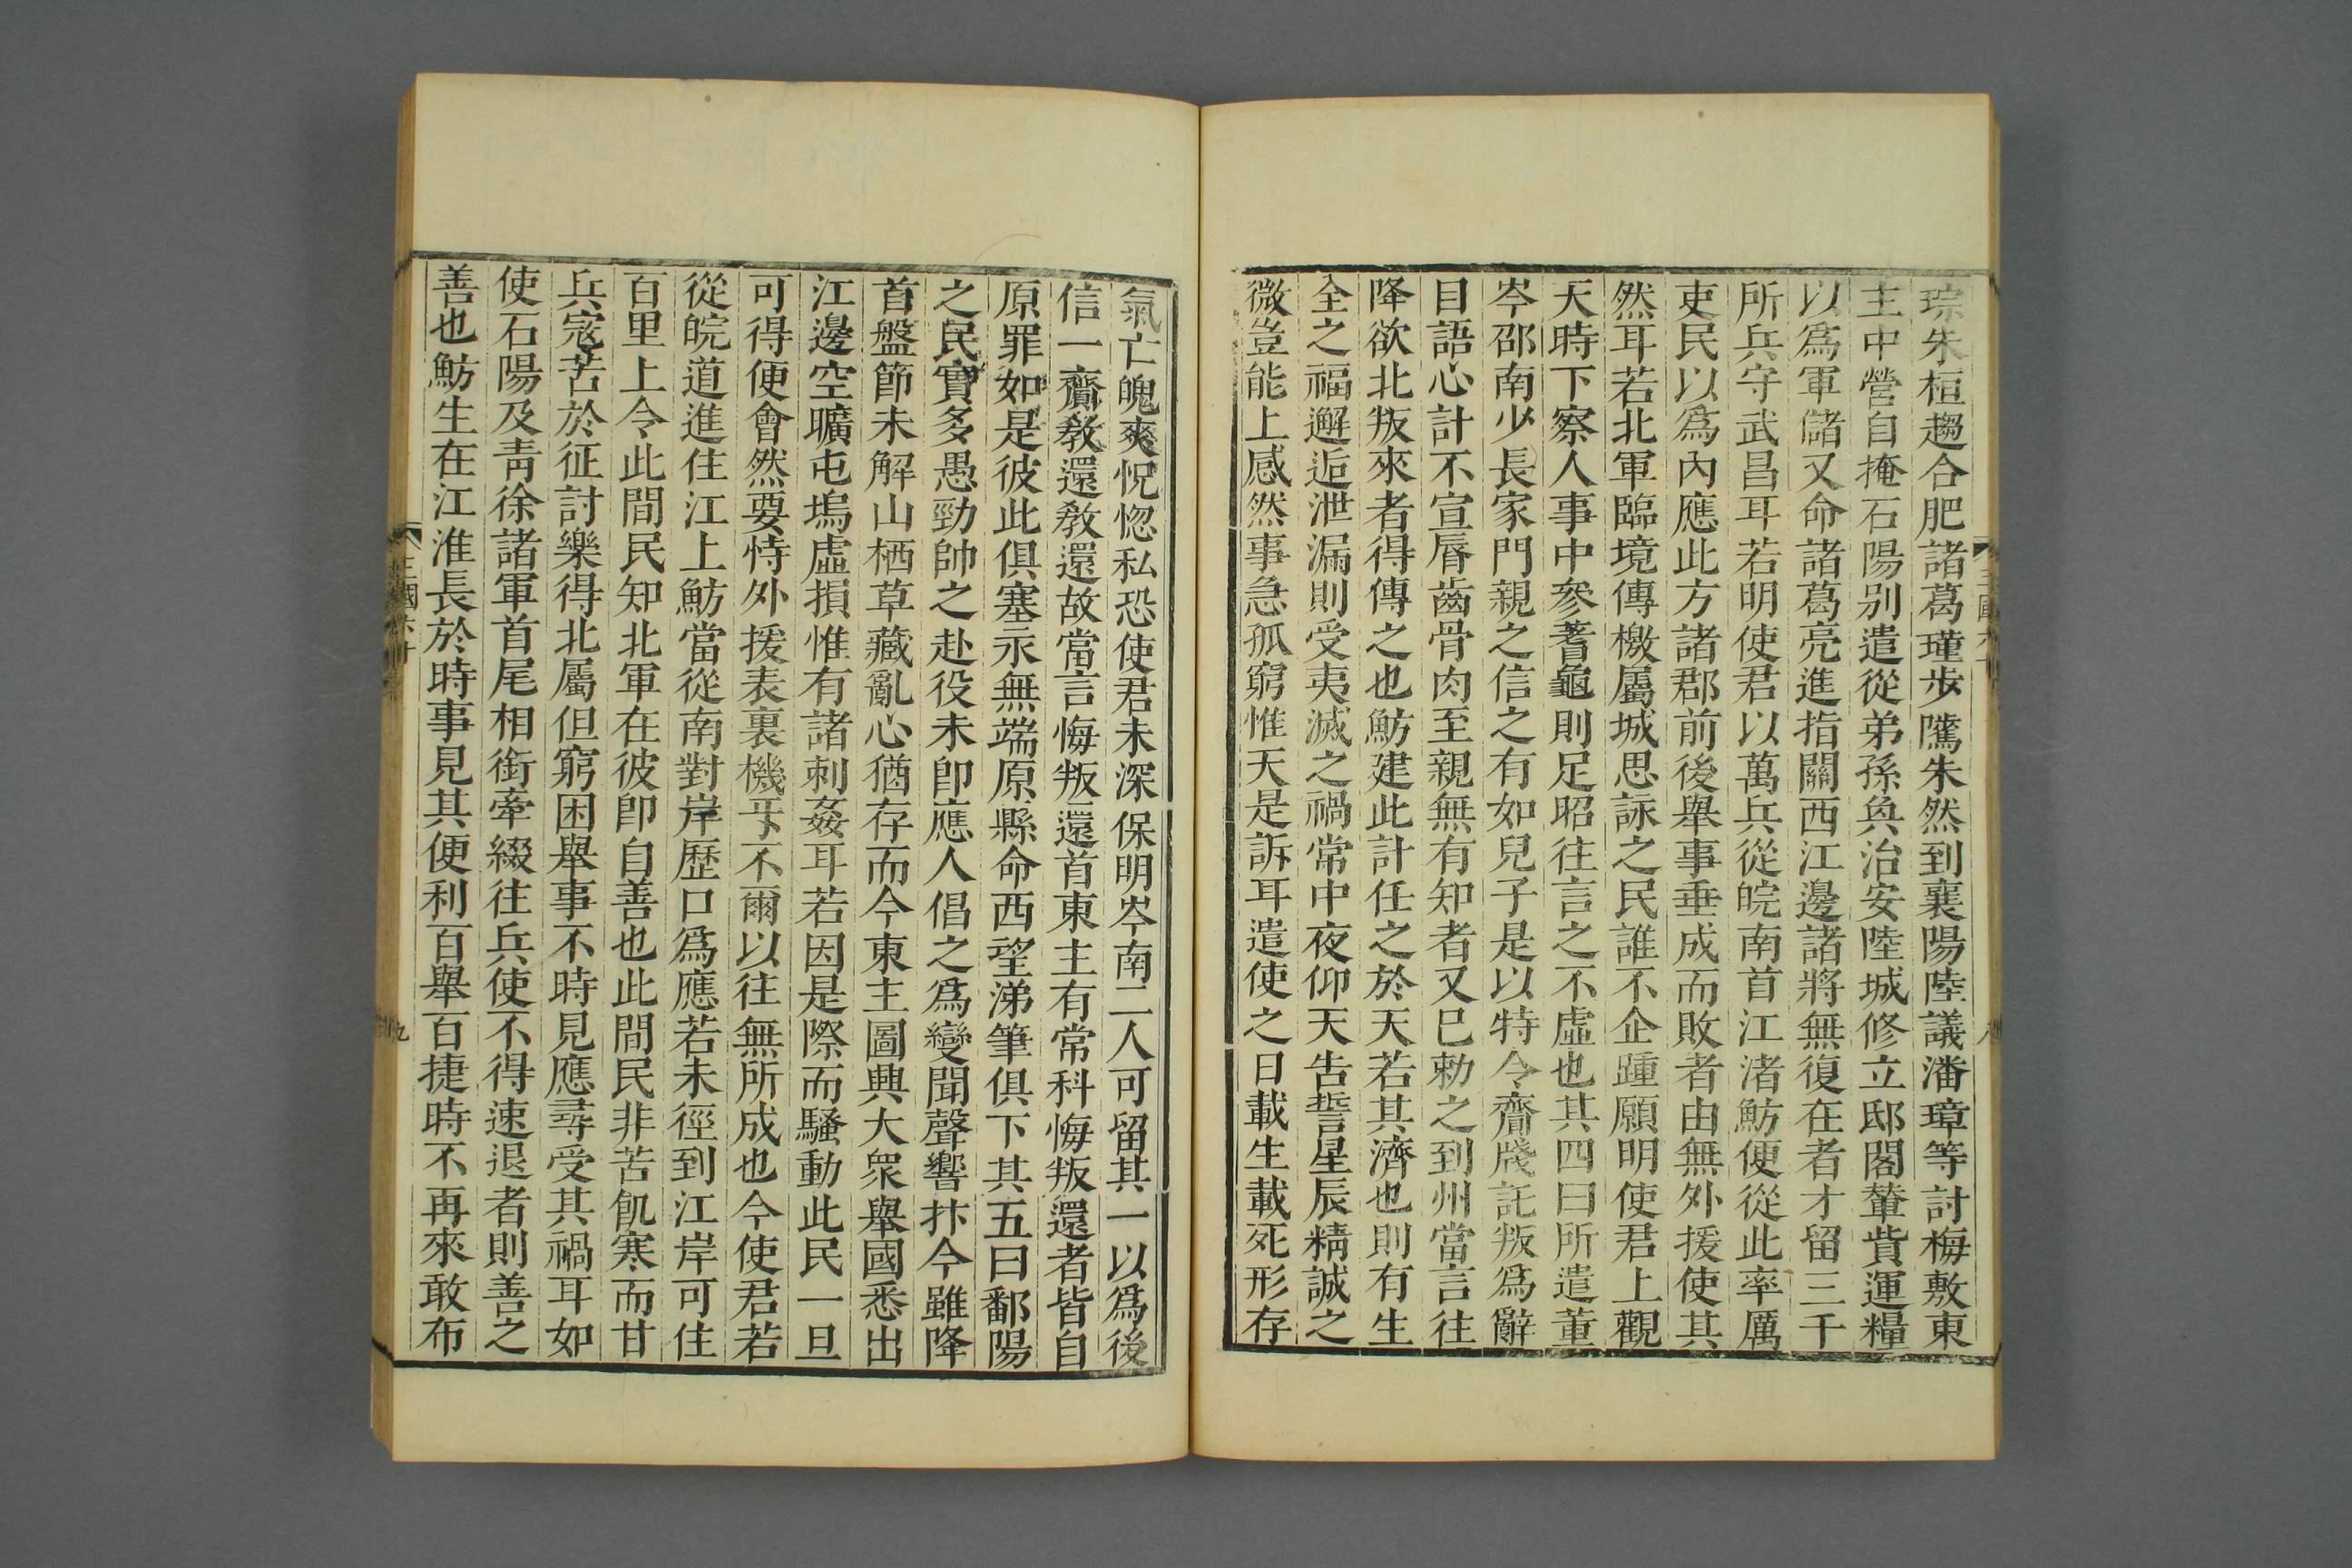 琮朱桓趨合肥諸葛瑾步隲朱然到襄陽陸議潘璋等討梅敷東
主中營自掩石陽别遣從弟孫奐治安陸城修立邸閣輦貲運糧
以爲軍儲又命諸葛亮進指關西江邊諸將無復在者才留三千
所兵守武昌耳若明使君以萬兵從皖南首江渚魴便從此率厲
吏民以爲内應此方諸郡前後舉事垂成而敗者由無外援使其
然耳若北軍臨境傳檄屬城思詠之民誰不企踵願明使君上觀
天時下察人事中參蓍龜則足昭往言之不虛也其四曰所遣董
岑邵南少長家門親之信之有如兒子是以特令齎牋託叛爲辭
目語心計不宣脣齒骨肉至親無有知者又已勑之到州當言往
降欲北叛來者得傳之也魴建此計任之於天若其濟也則有生
全之福邂逅泄漏則受夷滅之禍常中夜仰天告誓星辰精誠之
微豈能上感然事急孤窮惟天是訴耳遣使之日載生載死形存
氣亡魄爽怳惚私恐使君未深保明岑南二人可留其一以爲後
信一齎敎還敎還故當言悔叛還首東主有常科悔叛還者皆自
原罪如是彼此俱塞永無端原縣命西望涕筆俱下其五曰鄱陽
之民實多愚勁帥之赴役未卽應人倡之爲變聞聲響抃今雖降
首盤節未解山栖草藏亂心猶存而今東主圖興大衆舉國悉出
江邊空曠屯塢虛損惟有諸刺姦耳若因是際而騷動此民一旦
可得便會然要恃外援表裏機互不爾以往無所成也今使君若
從皖道進住江上魴當從南對岸歷口爲應若未徑到江岸可住
百里上令此間民知北軍在彼卽自善也此間民非苦飢寒而甘
兵寇苦於征討樂得北屬但窮困舉事不時見應尋受其禍耳如
使石陽及靑徐諸軍首尾相銜牽綴往兵使不得速退者則善之
善也魴生在江淮長於時事見其便利百舉百捷時不再來敢布
三國六十
九